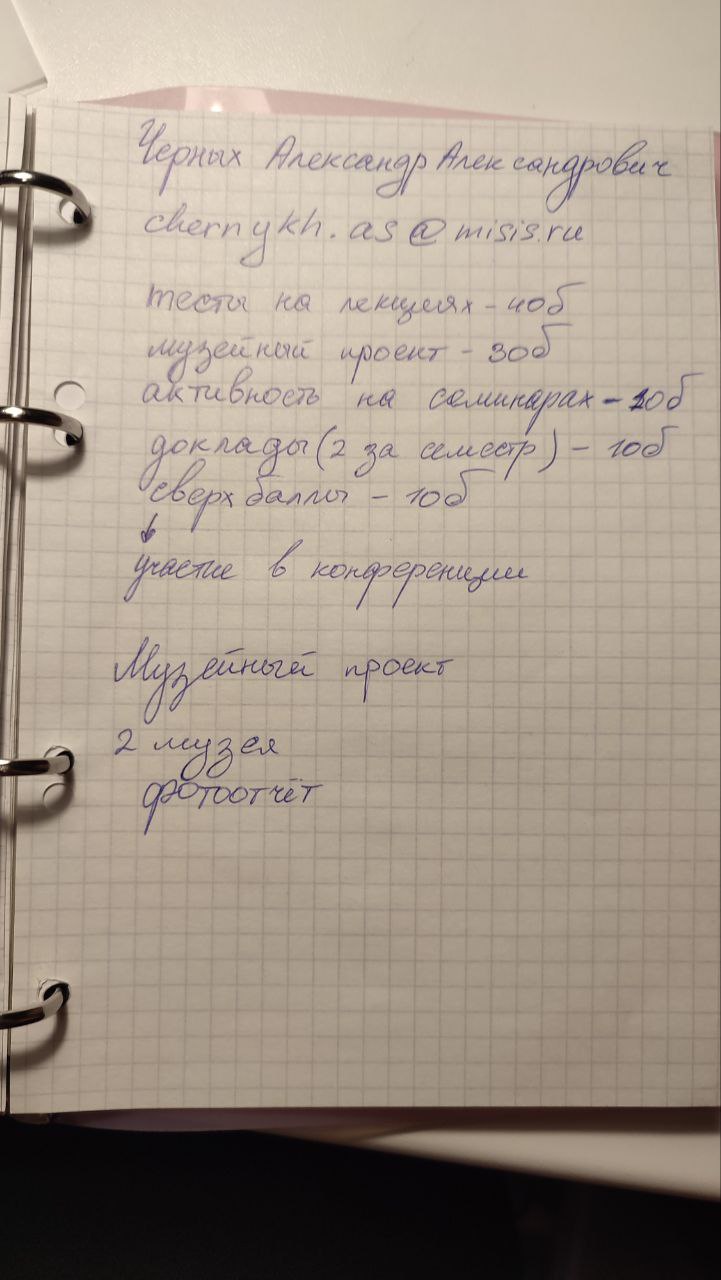 Черных Александр Александрович
chernykh.as@misis.ru
тесты на лекциях - 40б
музейный проект - 30б
активность на семинарах - 20б
доклады (2 за семестр) - 10б
сверх баллы - 10б
↓
участие в конференции
Музейный проект
2 музея
фотоотчёт